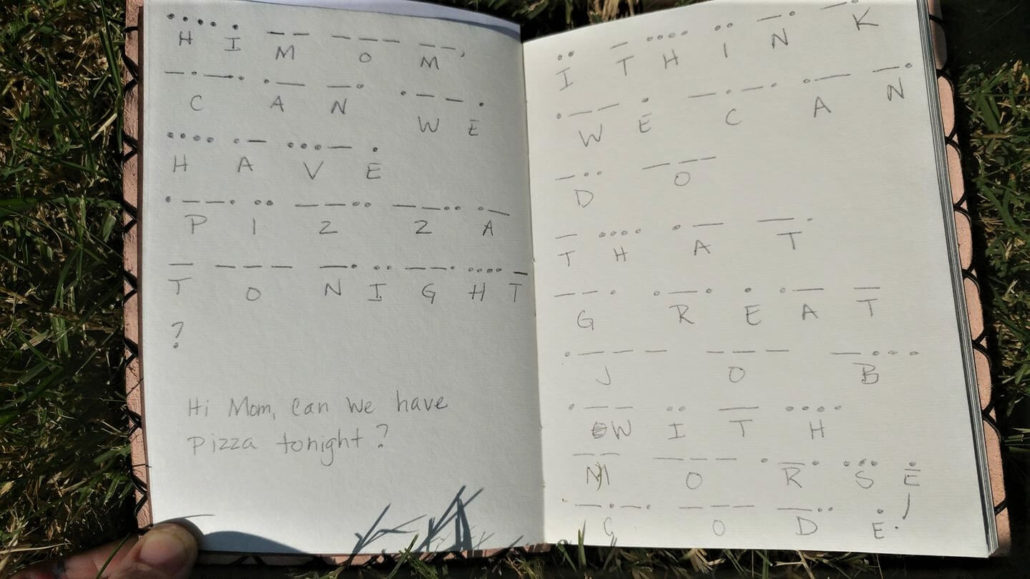 •••• •• — — — — — — —,
H I M O M
— • — • • — — • • — — •
C A N W E
•••• • — ••• — •
H A V E
• — — • •• — — •• — — •• • —
P I Z Z A
— — — — — • •• — — • •••• —
T O N I G H T
?
Hi Mom, Can We have
Pizza tonight?
•• — •••• •• — • — • —
I T H I N K
• — — • — • — • • — — •
W E C A N
— •• — — —
D O
— •••• • — — •
T H A T
— — • • — • • • — —
G R E A T
• — — — — — — — •••
J O B
• — — •• — ••••
W I T H
— — — — — • — • ••• •
M O R S E
— • — • — — — — •• •
C O D E!